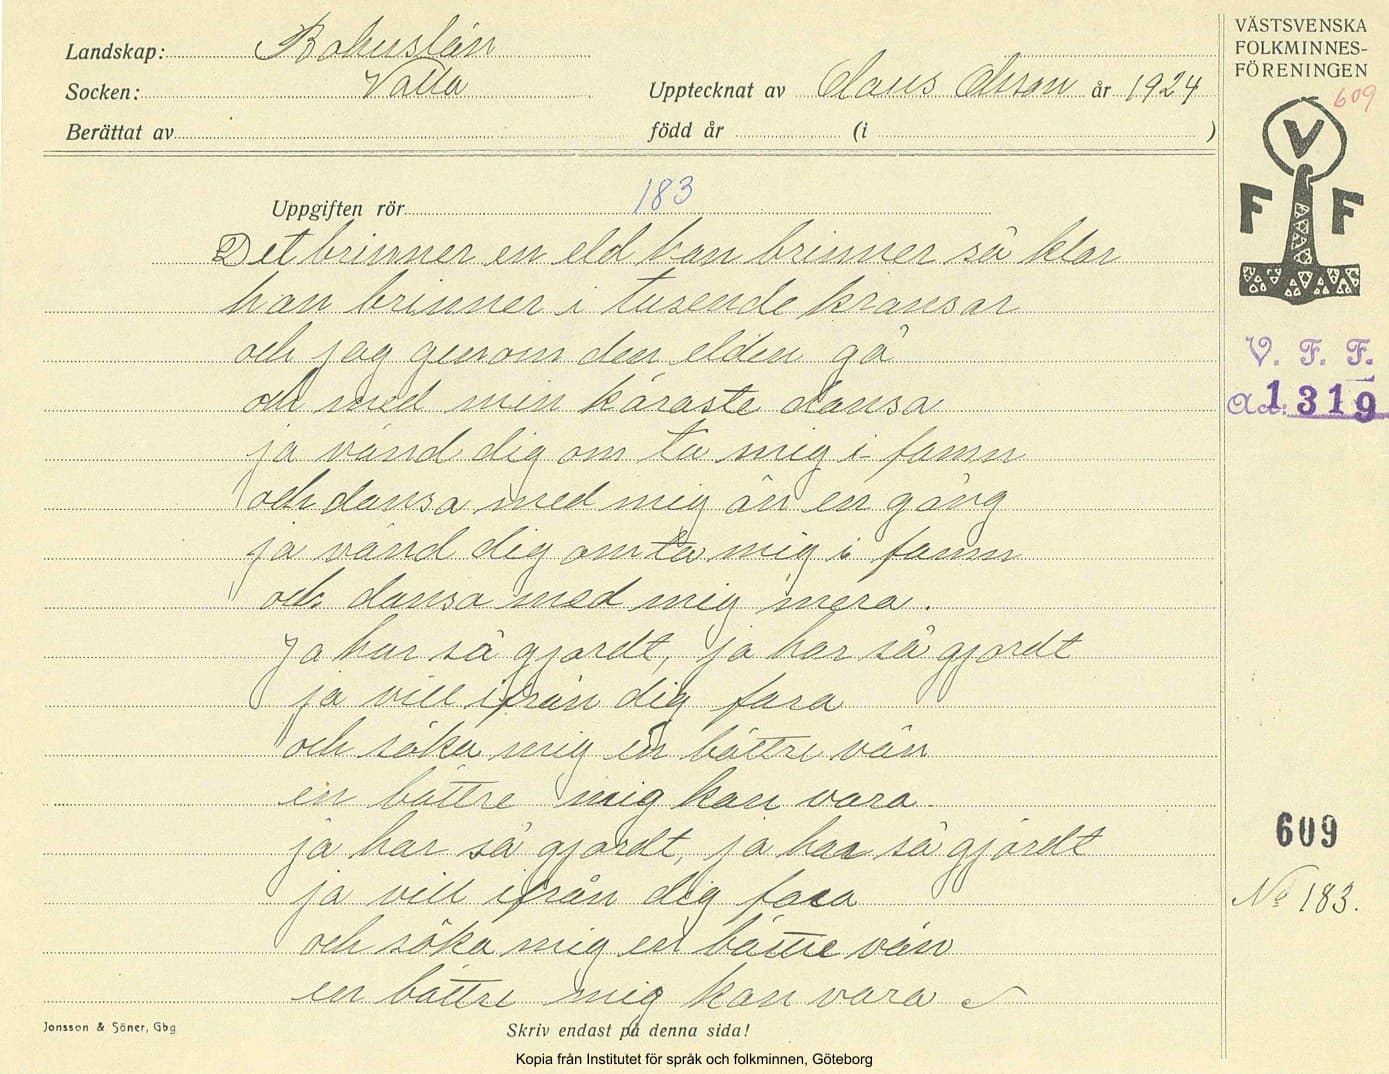 Landskap: Bohuslän
Socken: Valla
Upptecknat av Claus Olsson år 1924
Berättat av
född år (i )
VÄSTSVENSKA
FOLKMINNES-
FÖRENINGEN
609
V
F F
Uppgiften rör 183
Det brinner en eld han brinner så klar
han brinner i tusende kransar
och jag genom den elden gå
och med min käraste dansa
ja vänd dig om ta mig i famn
och dansa med mig än en gång
ja vänd dig om ta mig i famn
och dansa med mig mera.
Ja har så gjordt, ja har så gjordt
ja vill ifrån dig fara
och söka mig en bättre vän
en bättre mig kan vara.
ja har så gjordt, ja har så gjordt
ja vill ifrån dig fara
och söka mig en bättre vän
en bättre mig kan vara
V. F. F.
Acc: 1319
609
No 183.
Jonsson & Söner, Gbg
Skriv endast på denna sida!
Kopia från Institutet för språk och folkminnen, Göteborg